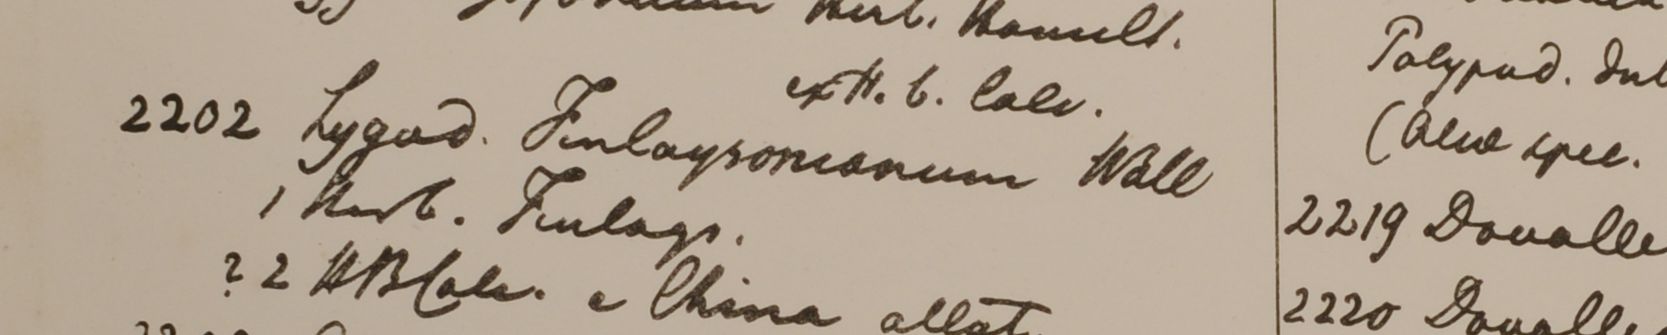 Herb. Hamilt.
ex H. b. Calc.
2202 Lygod. Finlaysonianum Wall
1 Herb. Finlays.
? 2 HBCalc. e China allat.
Polypod.
(Aliae spec.
2219 Davalle
2220 Davalle